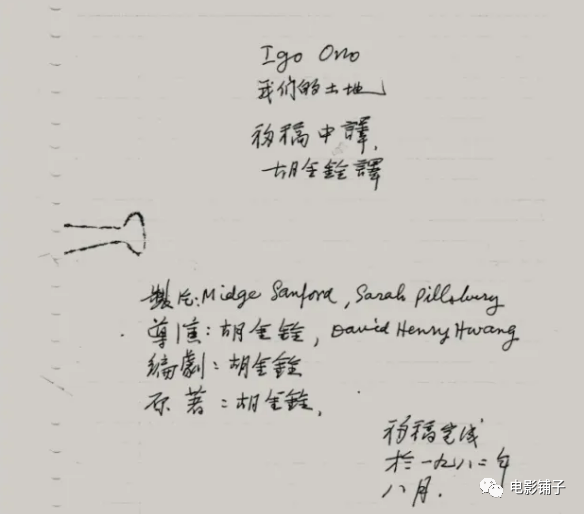 Igo Ono
我们的土地
初稿中譯,
胡金銓譯
製片:Midge Sanford, Sarah Pillsbury
導演:胡金銓, David Henry Hwang
编劇:胡金銓
原著:胡金銓,
初稿完成
於一九八二年
八月.
电影铺子